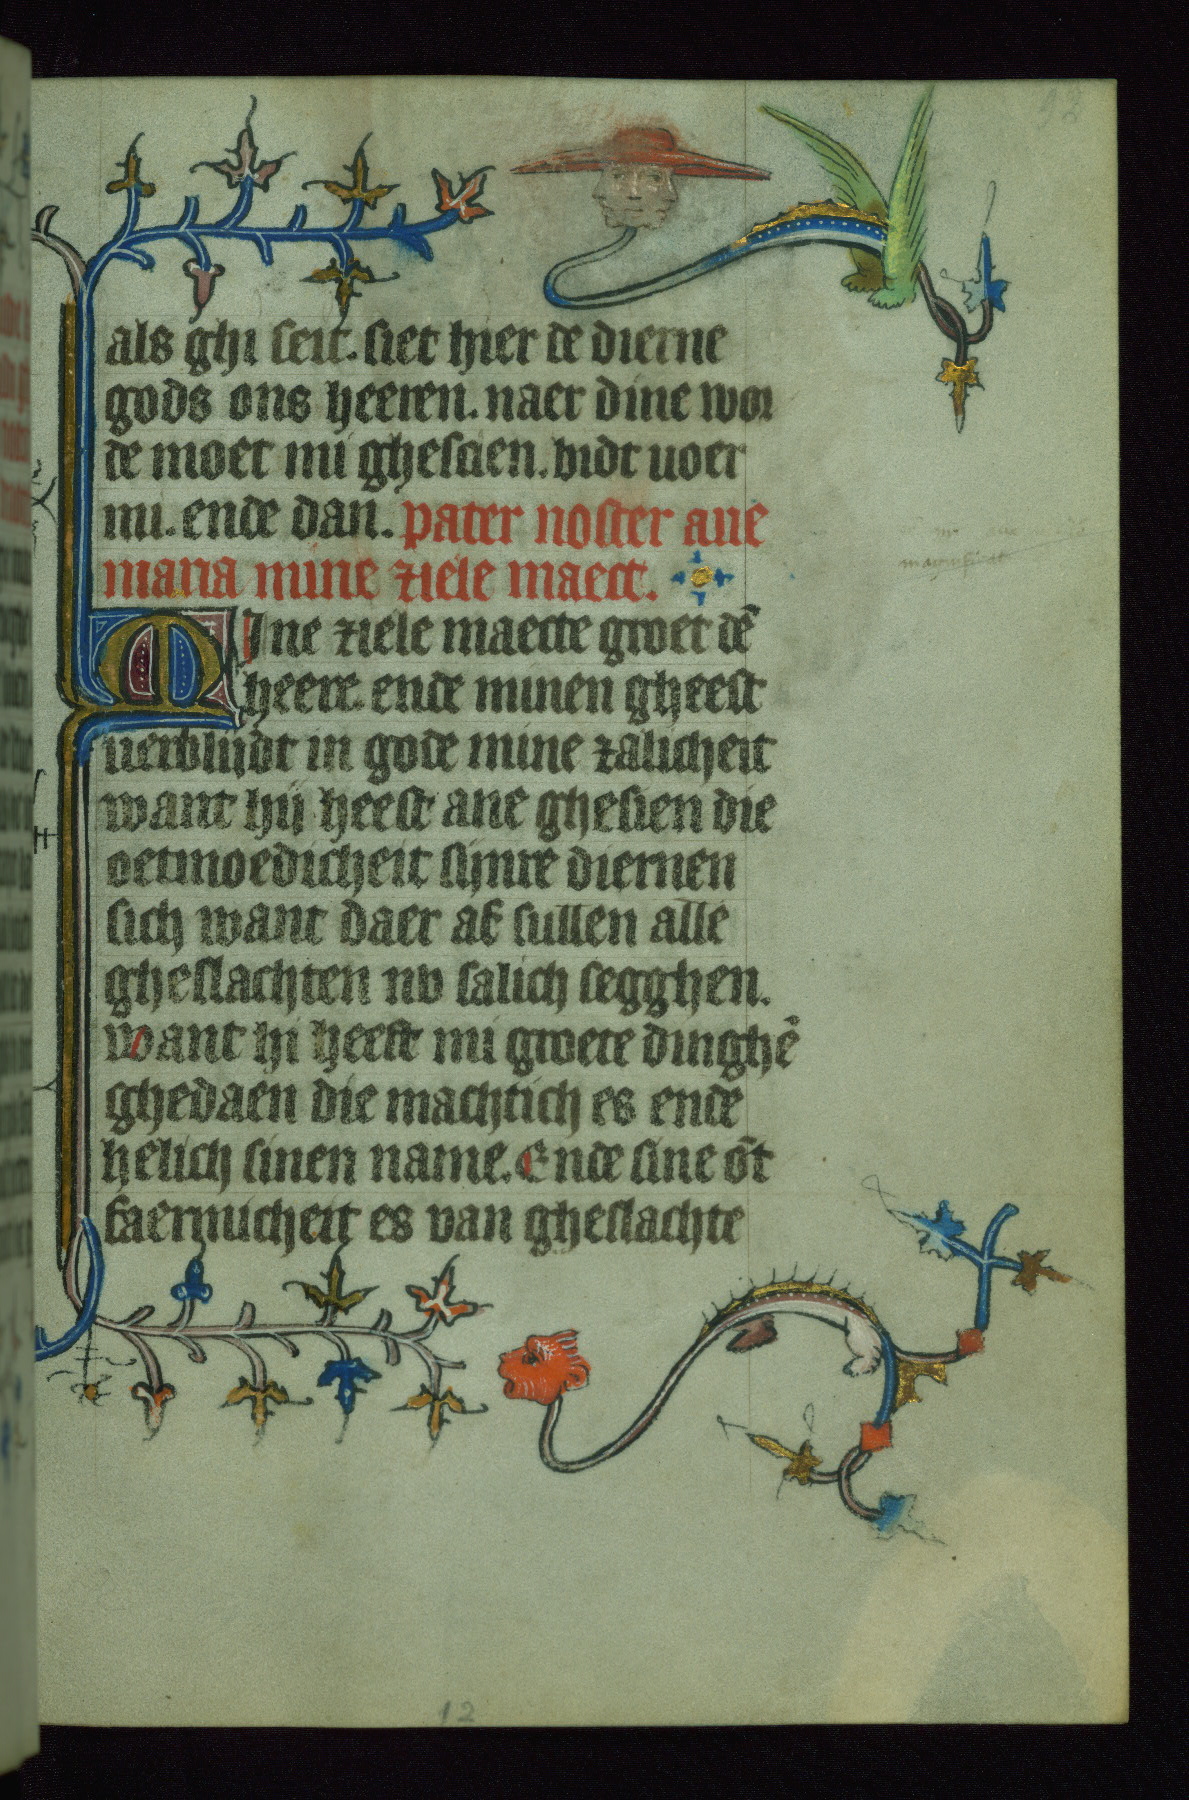 als ghi seit. siet hier de dierne
gods ons heeren. naer dine wor
de moet mi ghescien. bidt uoer
nu. ende dan. pater noster aue
maria mine ziele maect.
MIne ziele maecte groet dē
heere. ende minen gheest
uerblijdt in gode mine zalicheit
want hij heeft ane ghesien die
oetmoedicheit sijnre diernen
sich want daer af sullen alle
gheslachten nv salich segghen.
want hi heeft mi groete dinghē
ghedaen die machtich es ende
helich sinen name. Ende sine ōt
faermicheit es van gheslachte
magnificat
12